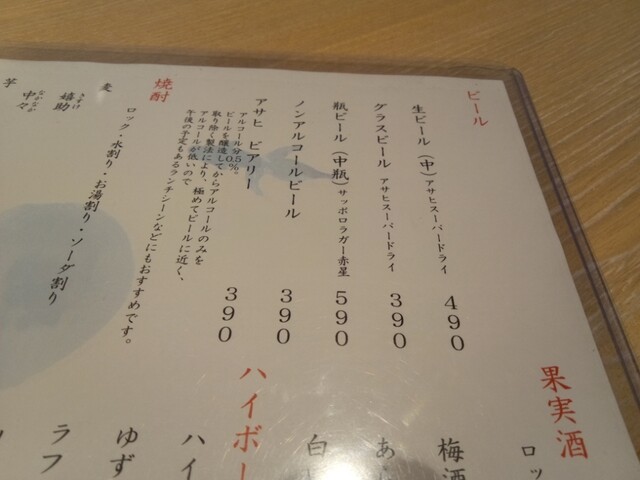 ビール
生ビール（中）アサヒスーパードライ 490
グラスビール アサヒスーパードライ 390
瓶ビール（中瓶）サッポロラガー赤星 590
ノンアルコールビール 390
アサヒ ビアリー 390
アルコール分0.5%。
ビールを醸造してからアルコールのみを
取り除く製法により、極めてビールに近く、
アルコールが低いので
午後の予定もあるランチシーンなどにもおすすめです。
焼酎
ロック・水割り・お湯割り・ソーダ割り
麦
嬉助
きすけ
中々
なかなか
芋
果実酒
ロッ
梅酒
あ
白
ハイボー
ハイ
ゆず
ラフ